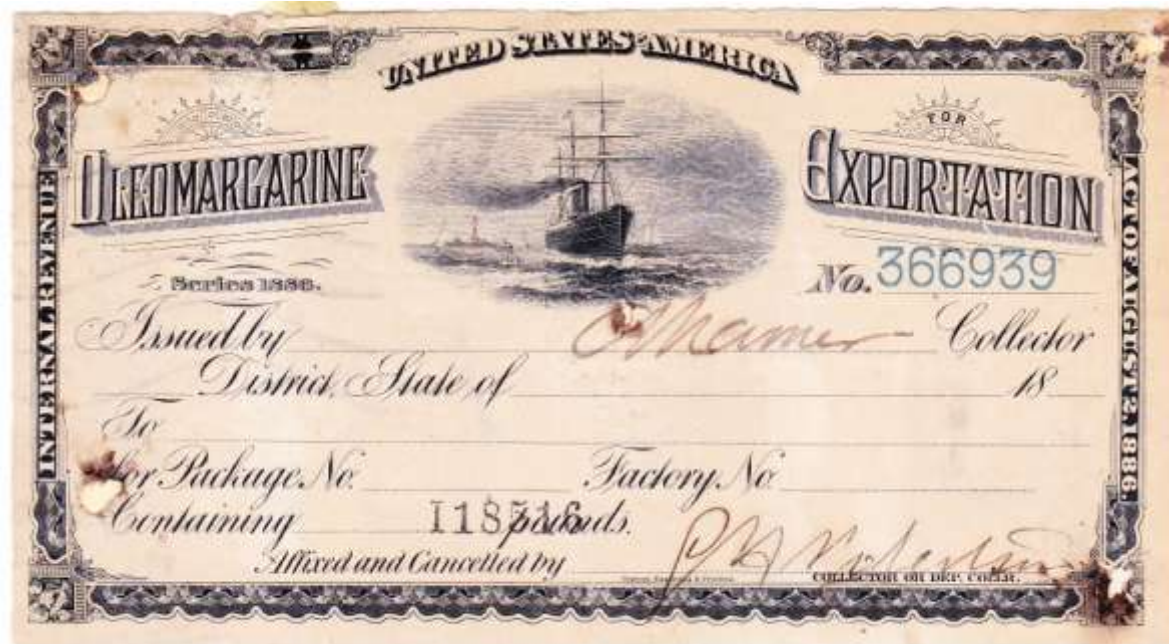 UNITED STATES AMERICA
OLEOMARGARINE
FOR
EXPORTATION
INTERNAL REVENUE
ACT OF AUGUST 2, 1886.
Series 1886.
No. 366939
Issued by Collector
District, State of 18
To
For Package No. Factory No
Containing 118516 pounds.
Affixed and Cancelled by
COLLECTOR OR DEP. COLLR.